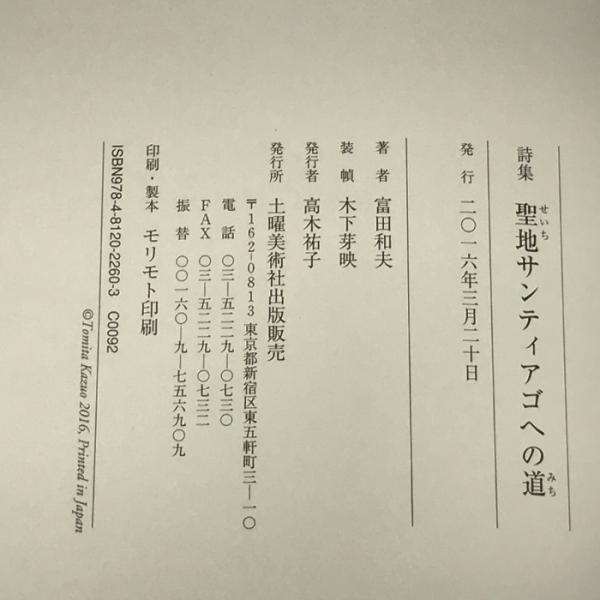 詩集 聖地サンティアゴへの道
せいち
みち
発行 二〇一六年三月二十日
著者 富田和夫
装幀 木下芽映
発行者 高木祐子
発行所 土曜美術社出版販売
〒162-0813 東京都新宿区東五軒町三―一〇
電話 〇三―五二二九―〇七三〇
FAX 〇三―五二二九―〇七三二
振替 〇〇一六〇―九―七五六九〇九
印刷・製本 モリモト印刷
ISBN978-4-8120-2260-3 C0092
©Tomita Kazuo 2016, Printed in Japan